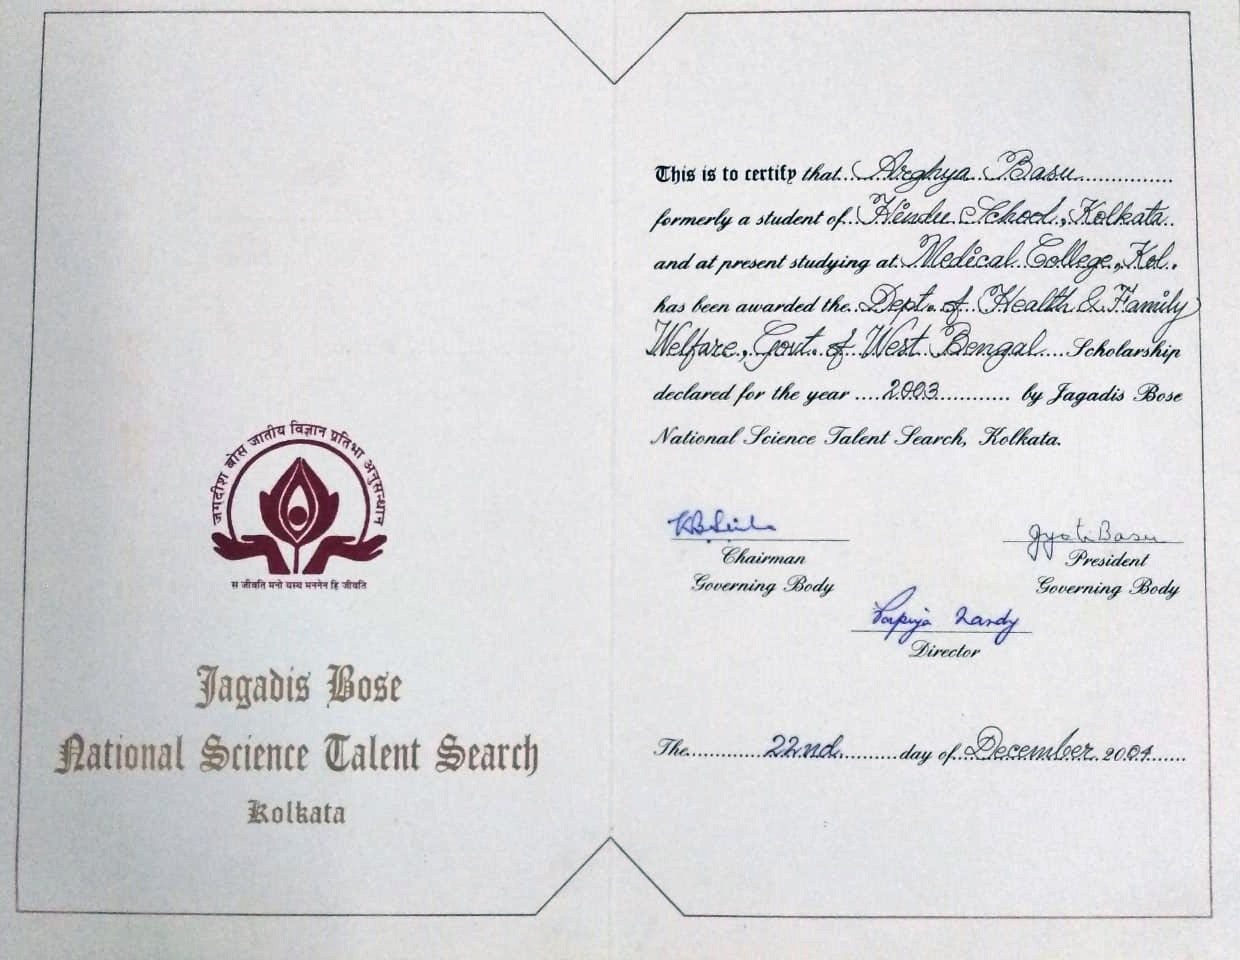 जगदीश बोस जातीय विज्ञान प्रतिभा अनुसन्धान
स जीवति मनो यस्य मननेन हि जीवति
Jagadis Bose
National Science Talent Search
Kolkata
This is to certify that Arghya Basu
formerly a student of Hindu School, Kolkata
and at present studying at Medical College, Kol.
has been awarded the Dept. of Health & Family
Welfare, Govt. of West Bengal Scholarship
declared for the year 2003 by Jagadis Bose
National Science Talent Search, Kolkata.
Jyoti Basu
Chairman President
Governing Body Governing Body
Nandy
Director
The 22nd day of December 2004